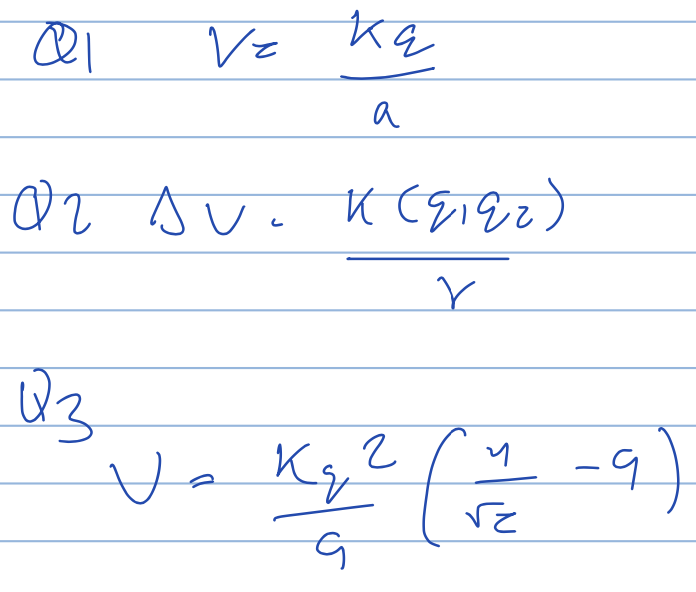 Q1 V = Kq / a
Q2 ΔU = K(q₁q₂) / r
Q3
U = Kq² / a (4 / √2 - 9)